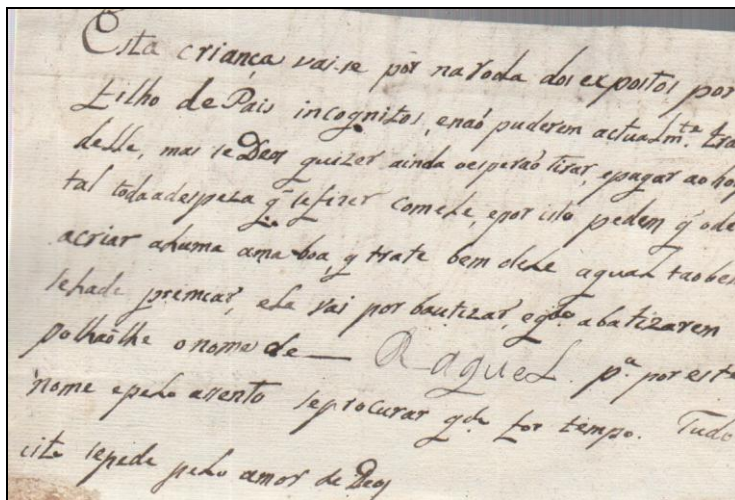 Esta criança vai-se por na Roda dos expostos por
filho de Pais incognitos, enaõ puderem actualm.te tra
delle, mas se Deos quizer ainda oesperaõ tirar, epagar ao hos
tal toda adespeza q' sefizer com ele, epor isto pedem q' ode
acriar ahuma ama boa, q' trate bem dele aqual taobem
sehade premear, ele vai por bautizar, eq.do abatizarem
polhaõlhe onome de — Raquel. p.a por este
nome epelo acento seprocurar q.do for tempo. Tudo
isto sepede pelo amor de Deos